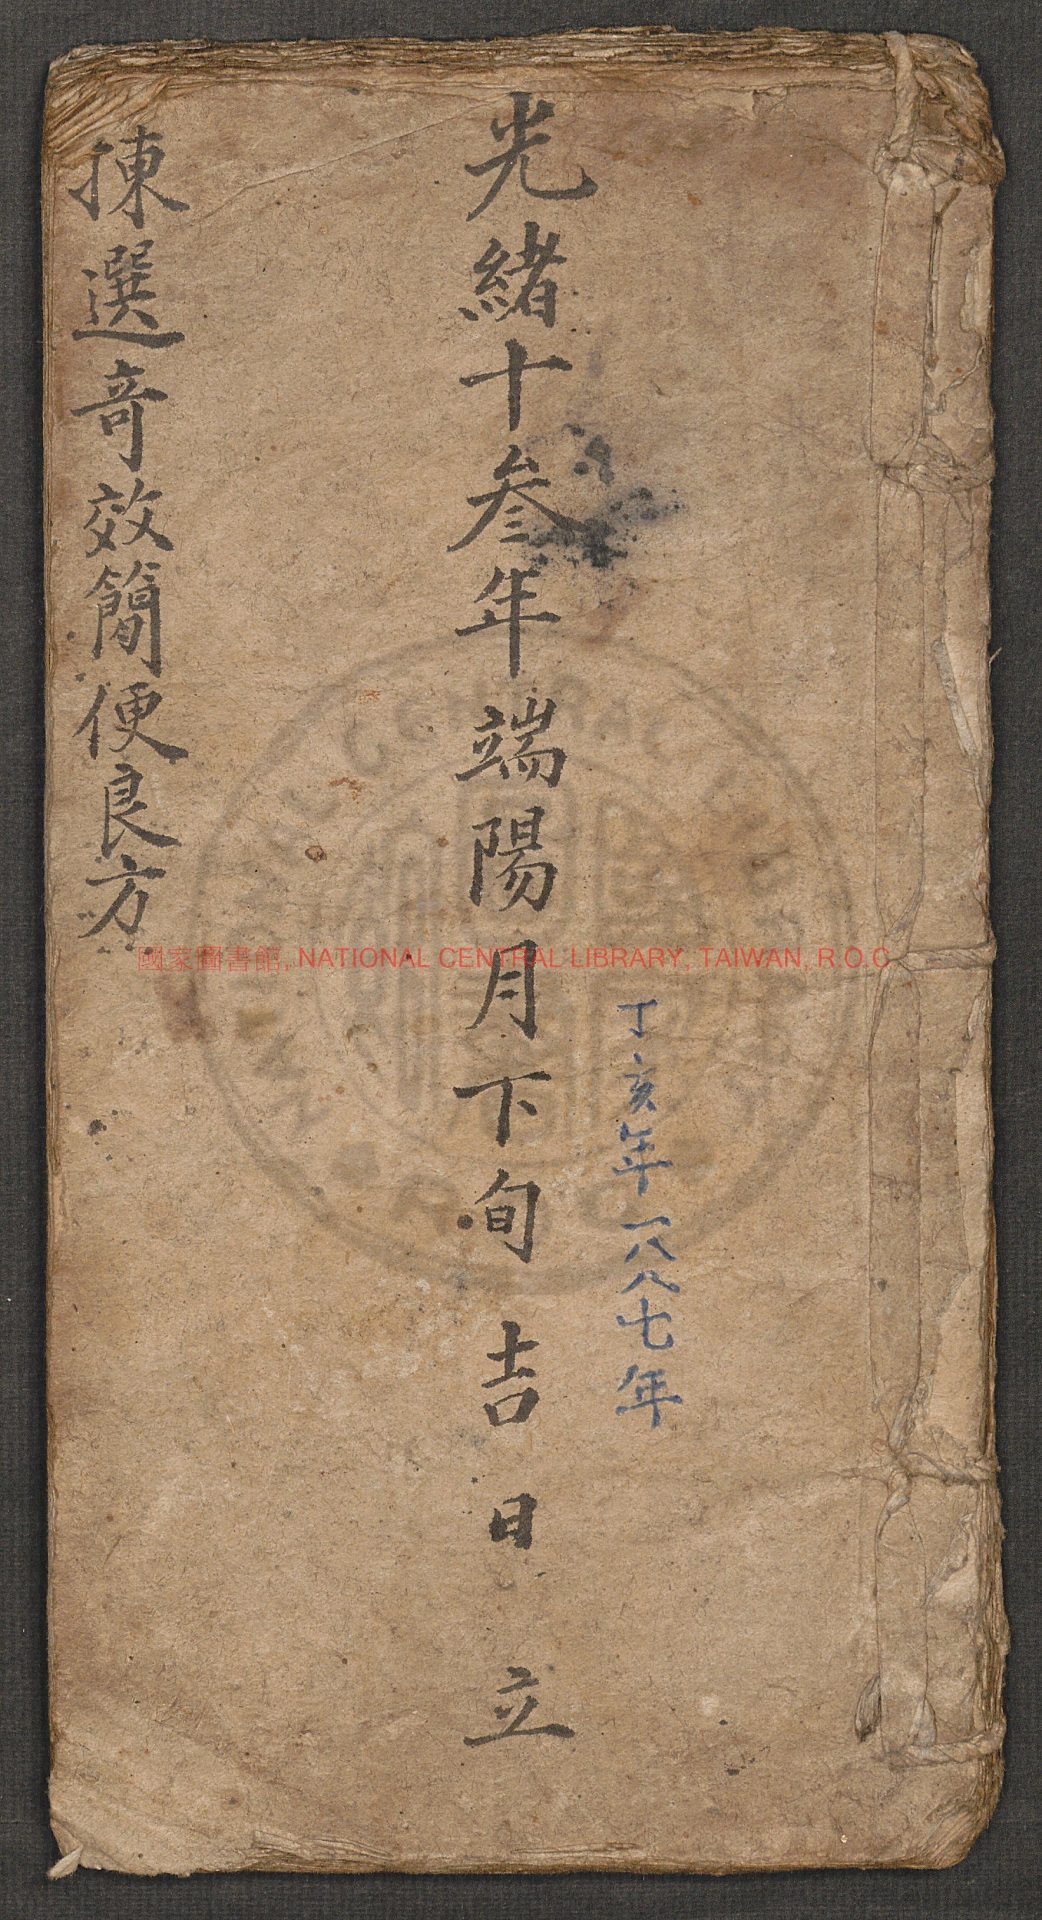 丁亥年一八八七年
光緒十叁年端陽月下旬吉日立
揀選奇效簡便良方
國家圖書館, NATIONAL CENTRAL LIBRARY, TAIWAN, R.O.C